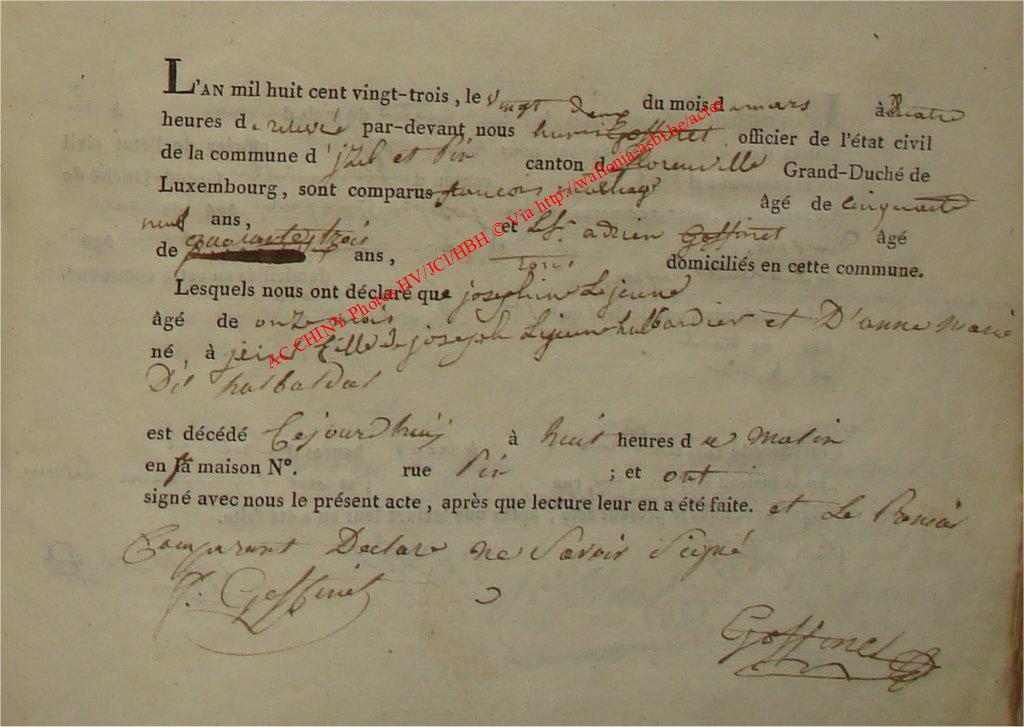 L'AN mil huit cent vingt-trois, le vingt deux du mois de mars à quatre
heures de relevé par-devant nous Goffinet officier de l'état civil
de la commune d'izel et Pin canton de florenville Grand-Duché de
Luxembourg, sont comparus francois âgé de cinquante
neuf ans, et adrien Goffinet âgé
de quarante trois ans, tous domiciliés en cette commune.
Lesquels nous ont déclaré que josephine Lejeune
âgé de onze mois
né, à fille de joseph Lejeune halbardier et D'anne marie
Dit halbardier
est décédé Cejourdhuij à huit heures du Matin
en sa maison N°. rue Pin ; et ont
signé avec nous le présent acte, après que lecture leur en a été faite. et Le Premier
Comparant Declare ne Savoir Signé
Goffinet
Goffinet
AC CHINY Photos HV/JCl/HBH © Via http://wallonia-asbl.be/actes